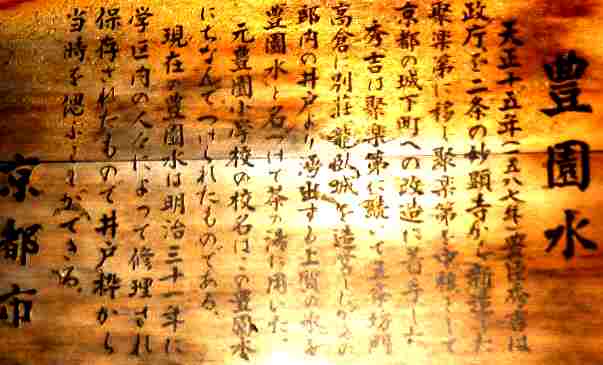 豊園水
天正十五年(一五八七年)豊臣秀吉は
政庁を二条の妙顕寺から新造した
聚楽第に移し聚楽第を中核として
京都の城下町への改造に着手した
秀吉は聚楽第に続いて五条坊門
高倉に別荘龍臥城を造営したがその
邸内の井戸より湧出する上質の水を
豊園水と名づけて茶の湯に用いた。
元豊園小学校の校名はこの豊園水
にちなんでつけられたものである。
現在の豊園水は明治三十一年に
学区内の人々によって修理され
保存されたもので井戸枠から
当時を偲ぶことができる。
京都市